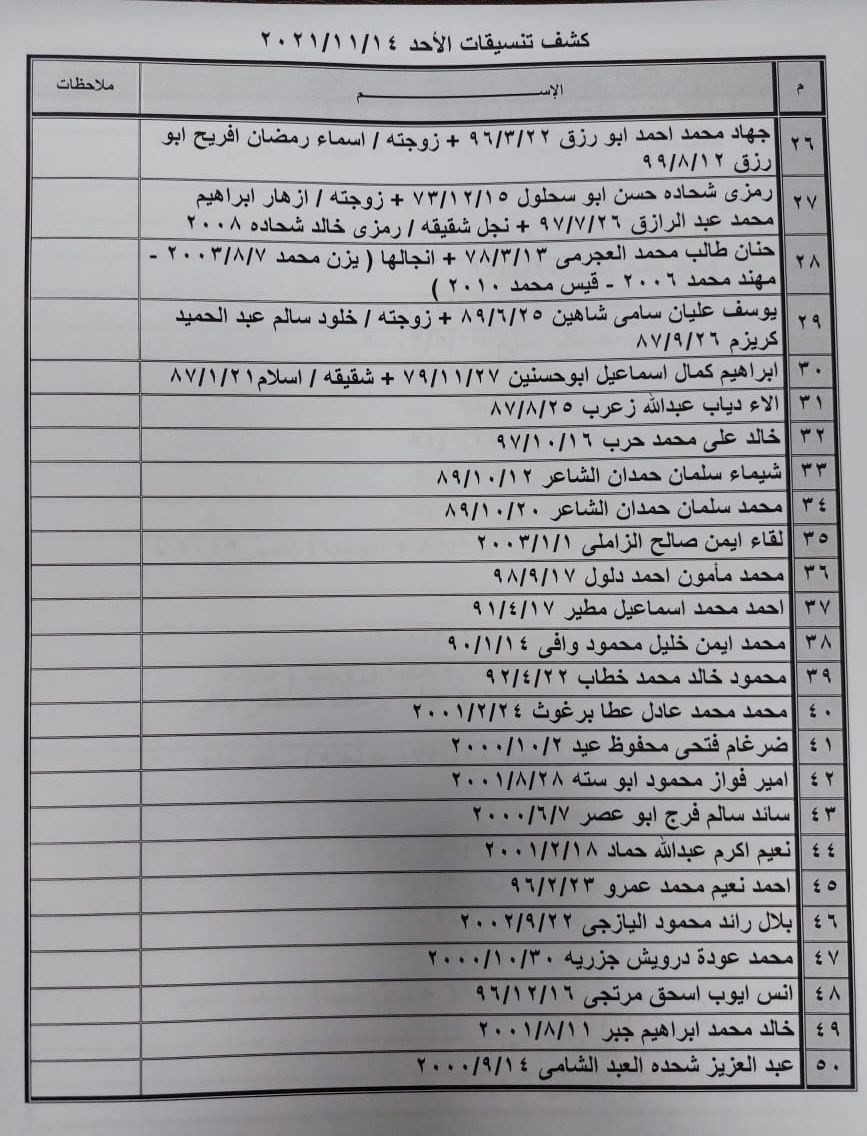 كشف تنسيقات الأحد ٢٠٢١/١١/١٤
م الإســـــم ملاحظات
٢٦ جهاد محمد احمد ابو رزق ٩٦/٣/٢٢ + زوجته / اسماء رمضان افريح ابو
رزق ٩٩/٨/١٢
٢٧ رمزى شحاده حسن ابو سحلول ٧٣/١٢/١٥ + زوجته / ازهار ابراهيم
محمد عبد الرازق ٩٧/٧/٢٦ + نجل شقيقه / رمزى خالد شحاده ٢٠٠٨
٢٨ حنان طالب محمد العجرمى ٧٨/٣/١٣ + انجالها ( يزن محمد ٢٠٠٣/٨/٧ -
مهند محمد ٢٠٠٦ - قيس محمد ٢٠١٠ )
٢٩ يوسف عليان سامى شاهين ٨٩/٦/٢٥ + زوجته / خلود سالم عبد الحميد
كريزم ٨٧/٩/٢٦
٣٠ ابراهيم كمال اسماعيل ابوحسنين ٧٩/١١/٢٧ + شقيقه / اسلام ٨٧/١/٢١
٣١ الاء دياب عبدالله زعرب ٨٧/٨/٢٥
٣٢ خالد على محمد حرب ٩٧/١٠/١٦
٣٣ شيماء سلمان حمدان الشاعر ٨٩/١٠/١٢
٣٤ محمد سلمان حمدان الشاعر ٨٩/١٠/٢٠
٣٥ لقاء ايمن صالح الزاملى ٢٠٠٣/١/١
٣٦ محمد مأمون احمد دلول ٩٨/٩/١٧
٣٧ احمد محمد اسماعيل مطير ٩١/٤/١٧
٣٨ محمد ايمن خليل محمود وافى ٩٠/١/١٤
٣٩ محمود خالد محمد خطاب ٩٢/٤/٢٢
٤٠ محمد محمد عادل عطا برغوث ٢٠٠١/٢/٢٤
٤١ ضرغام فتحى محفوظ عيد ٢٠٠٠/١٠/٢
٤٢ امير فواز محمود ابو سته ٢٠٠١/٨/٢٨
٤٣ سائد سالم فرج ابو عصر ٢٠٠٠/٦/٧
٤٤ نعيم اكرم عبدالله حماد ٢٠٠١/٢/١٨
٤٥ احمد نعيم محمد عمرو ٩٦/٢/٢٣
٤٦ بلال رائد محمود اليازجى ٢٠٠٢/٩/٢٢
٤٧ محمد عودة درويش جزريه ٢٠٠٠/١٠/٣٠
٤٨ انس ايوب اسحق مرتجى ٩٦/١٢/١٦
٤٩ خالد محمد ابراهيم جبر ٢٠٠١/٨/١١
٥٠ عبد العزيز شحده العبد الشامى ٢٠٠٠/٩/١٤